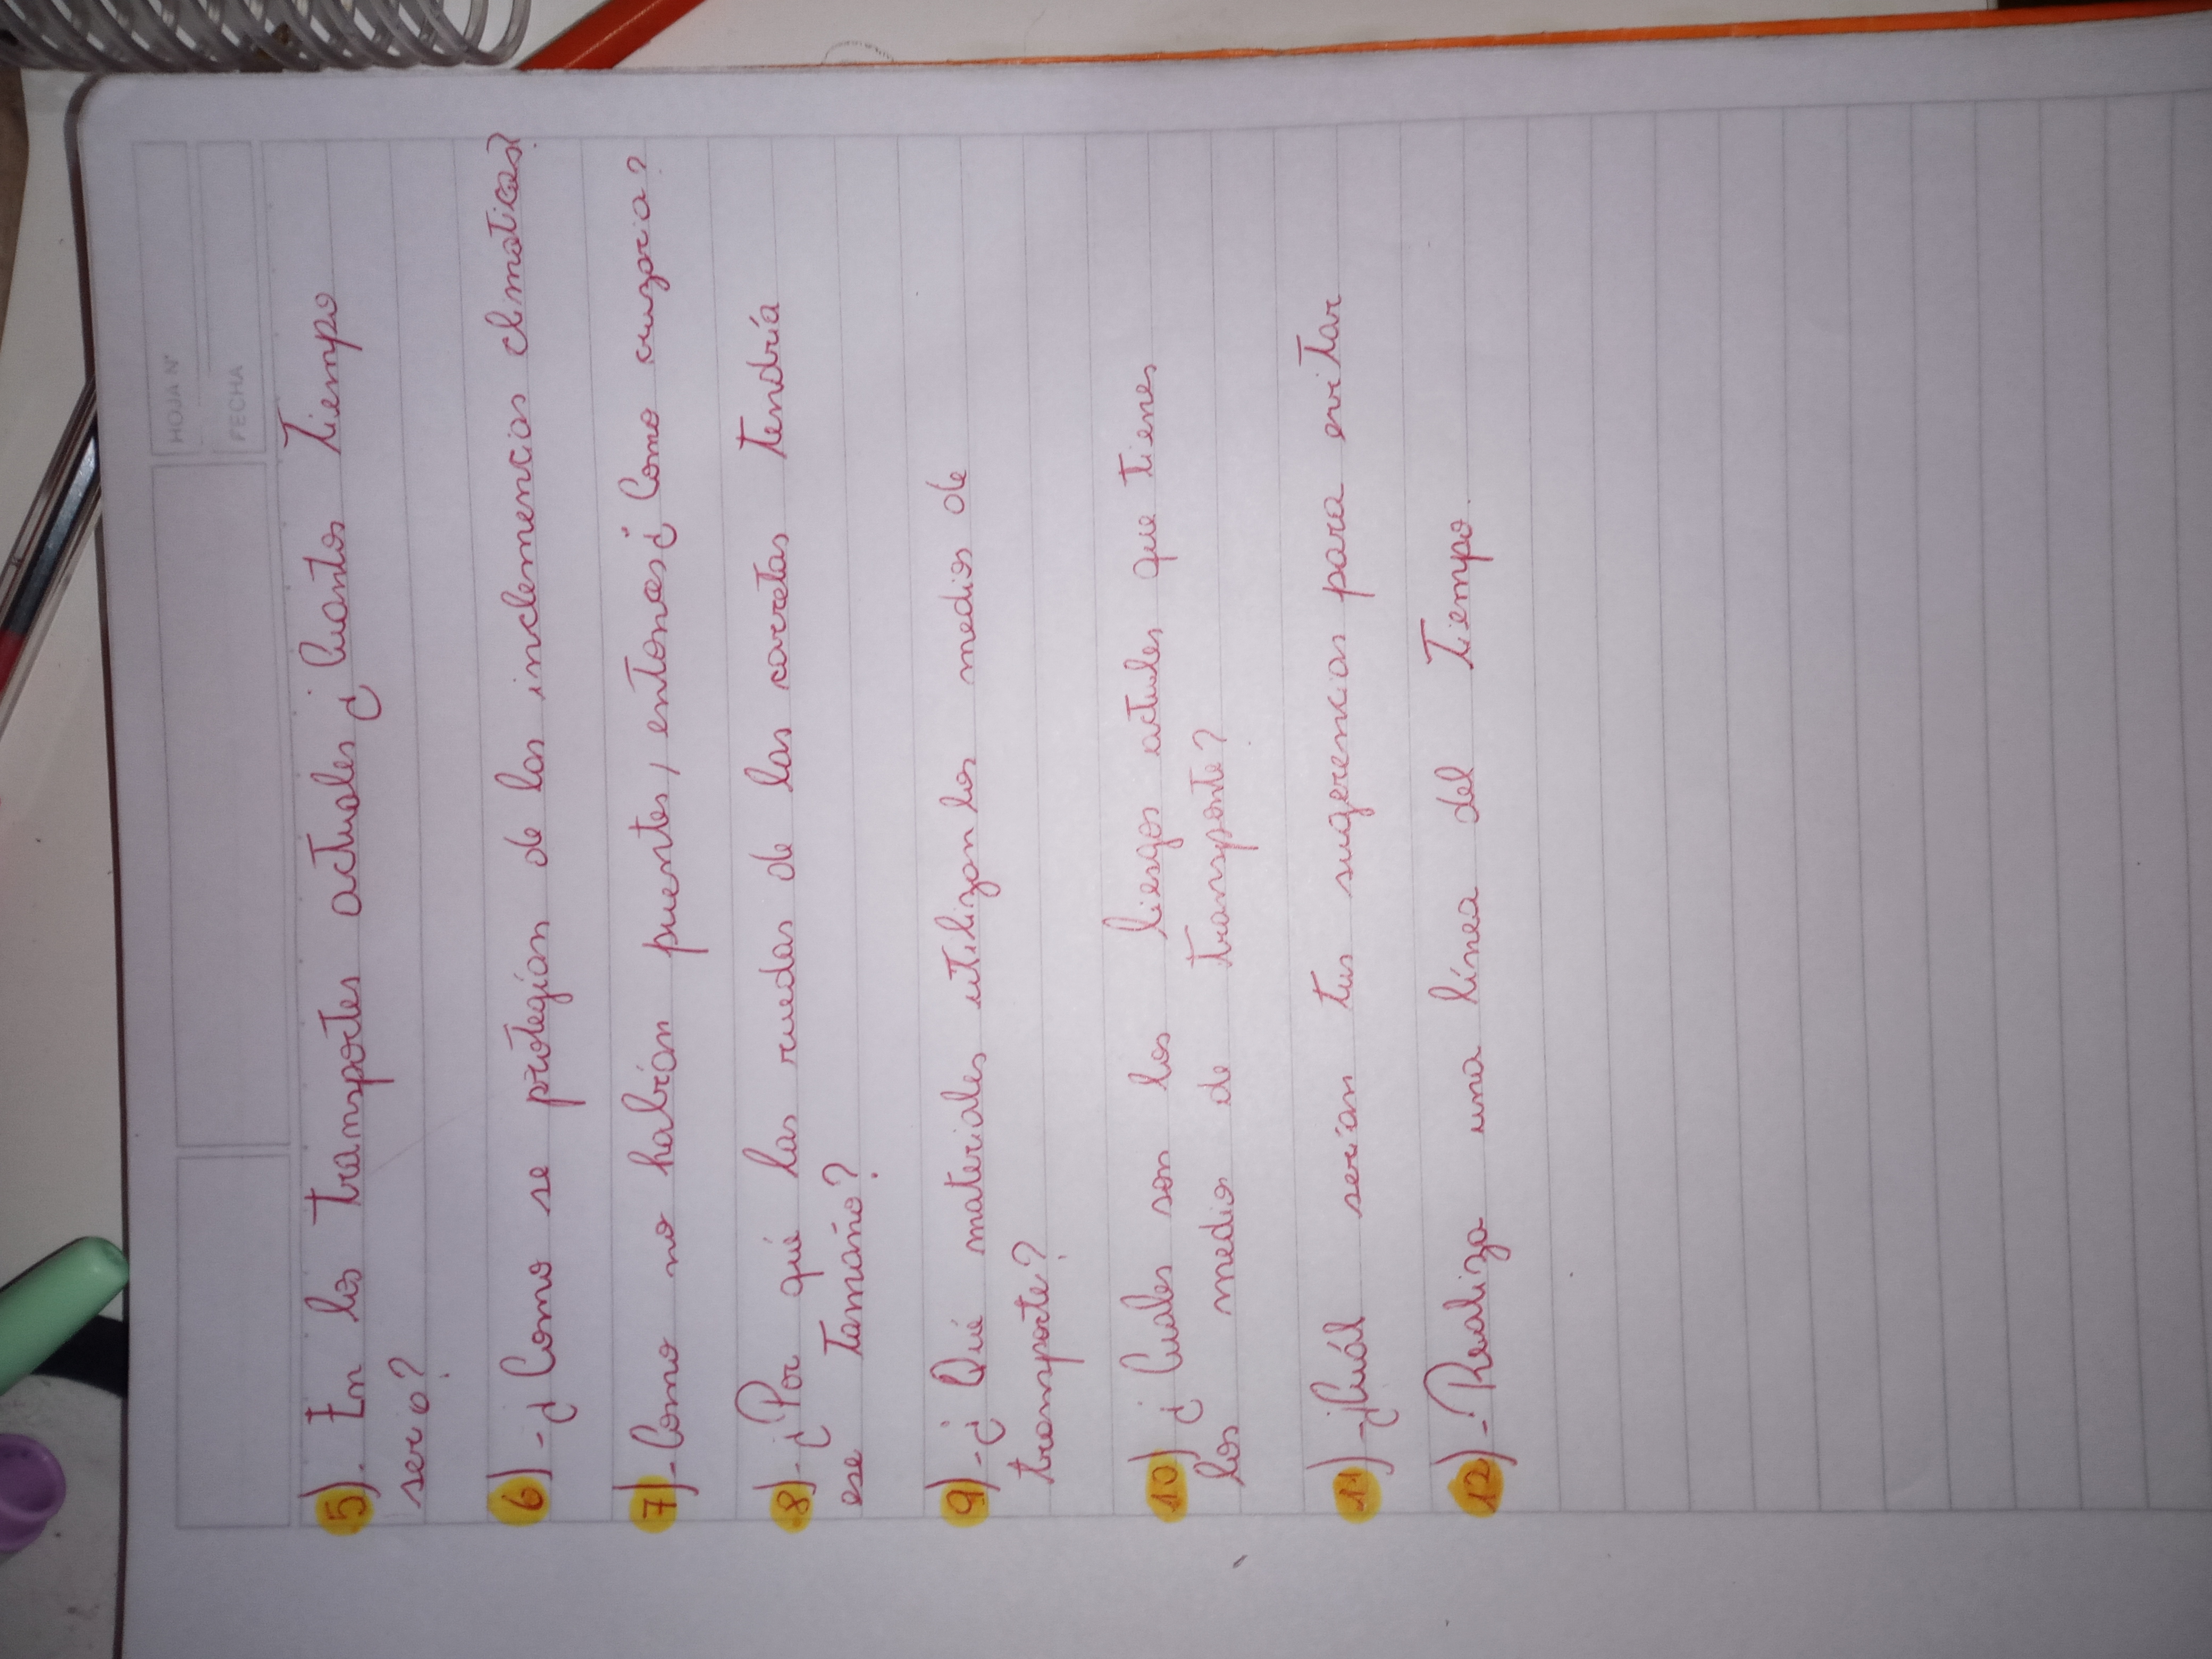 HOJA N°
FECHA
5). En los transportes actuales ¿Cuantos tiempo
serio?
6)-¿Como se protegían de las inclemencias climaticas?
7)-Como no habían puentes, entonces ¿Como cuzaria?
8)-¿Por qué las ruedas de las carretas tendría
ese tamaño?
9)-¿Qué materiales utilizan los medios de
transporte?
10) ¿Cuales son los liesgos actules que tienes
los medios de transponte?
11)-¿Cuál serian tus sugerencias para evitar
12)-Realiza una línea del tiempo.